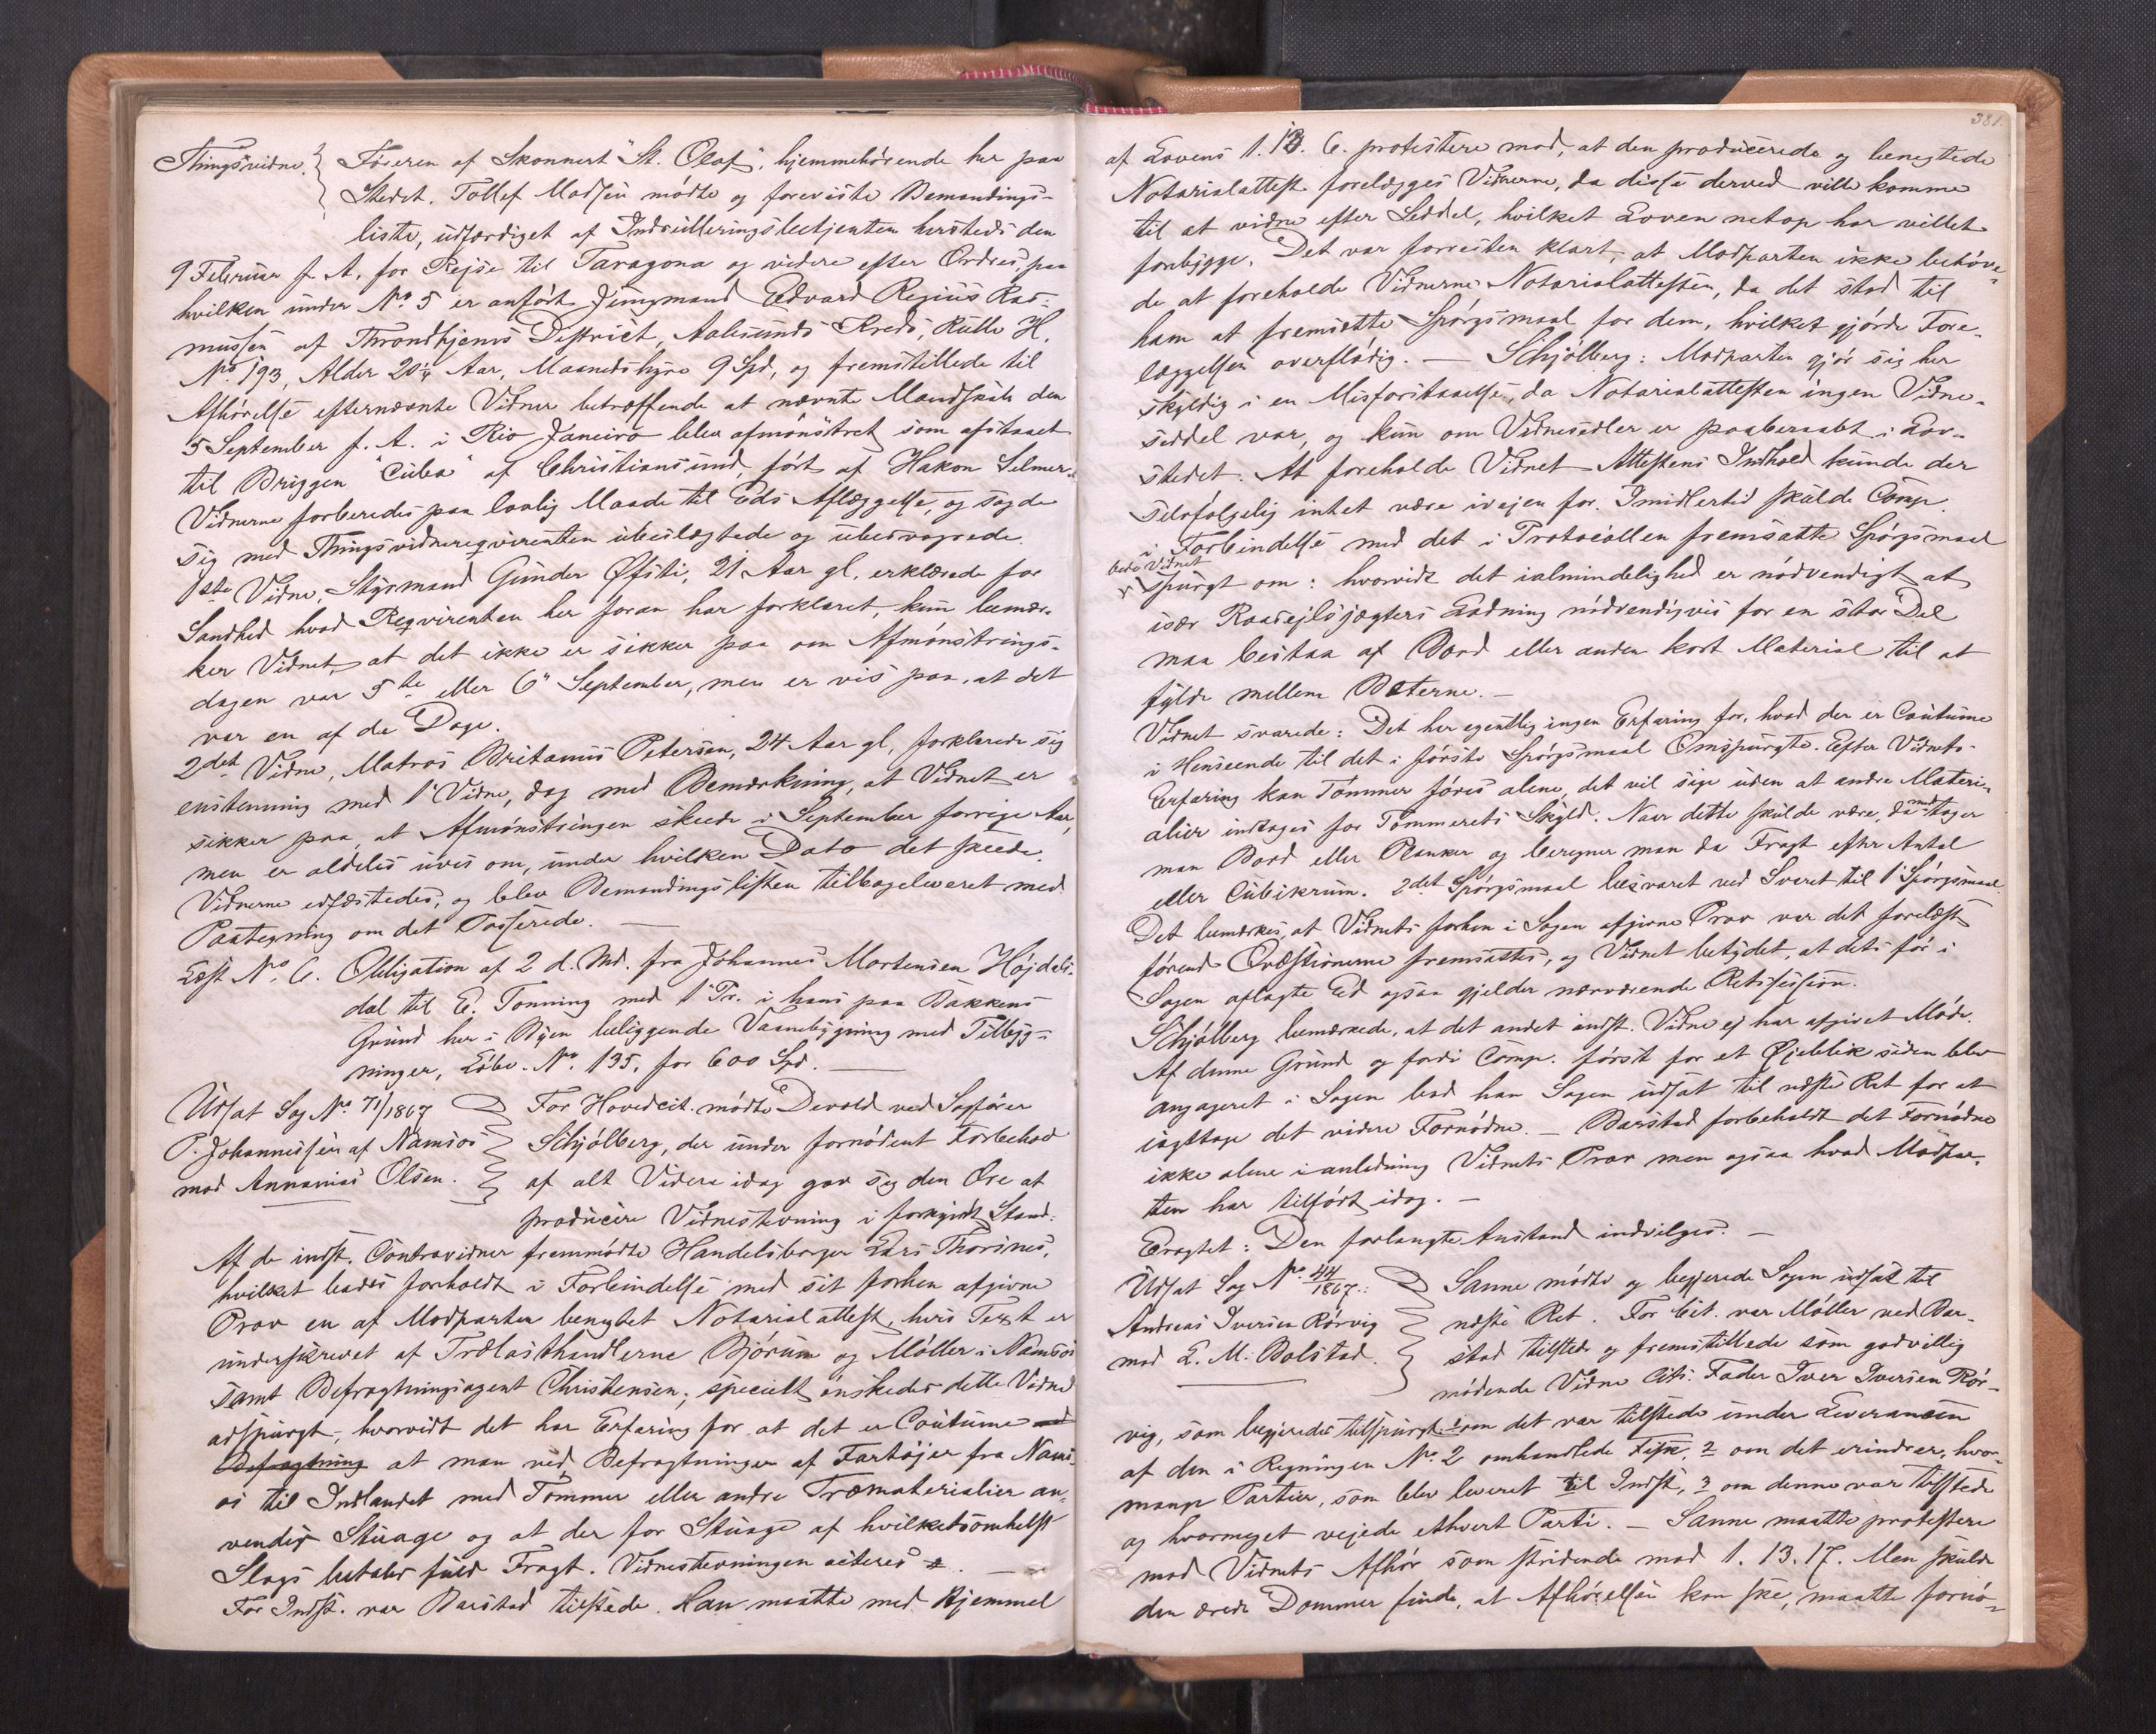 Thingsvidne. Føreren af Skonnert "St. Olaf", hjemmehørende her paa
Stedet. Tollef Madsen mødte og foreviste Bemandings-
liste, udfærdiget af Indrulleringsbetjenten hersteds den
9 Februar f. A. for Rejse til Taragona og videre efter Ordres, paa
hvilken under No 5 er anført Jungmand Edvard Regius Ras-
mussen af Throndhjems District, Aalesunds Kreds, Rulle H.
No 193, Alder 20¼ Aar, Maanedshyre 9 Spd, og fremstillede til
Afhørelse efternævnte Vidner betræffende at nævnte Mandskab den
5 September f. A. i Rio Janeiro blev afmønstret som afstaaet
til Briggen "Cuba" af Christianssund, ført af Hakon Selmer.
Vidnerne forberedes paa lovlig Maade til Eds Aflæggelse, og sagde
sig med Thingsvidnereqvirenten ubeslægtede og ubesvogrede.
1ste Vidne, Styrmand Gunder Øfsti, 21 Aar gl. erklærede for
Sandhed hvad Reqvirenten her foran har forklaret, kun bemær-
ker Vidnet, at det ikke er sikker paa om Afmønstrings-
dagen var 5te eller 6" September, men er vis paa, at det
var en af de Dage.
2det Vidne, Matros Britanus Petersen, 24 Aar gl, forklarede sig
enstemmig med 1' Vidne, dog med Bemærkning, at Vidnet er
sikker paa, at Afmønstringen skeede i September forrige Aar,
men er aldeles uvis om, under hvilken Dato det skeede.
Vidnerne edfæstedes, og blev Bemandingslisten tilbageleveret med
Paategning om det Passerede.
Læst No 6. Obligation af 2 d. Md. fra Johannes Mortensen Højdals-
dal til E. Tonning med 1' Pr. i hans paa Bakkens
Grund her i Byen beliggende Vaanebygning med Tilbyg-
ninger, Løbe-No 135, for 600 Spd.
Udsat Sag No 71/1867
P. Johannessen af Namsos
mod Annanias Olsen.
For Hovedcit. mødte Devold ved Sagfører
Schjølberg, der under fornødent Forbehold
af alt Videre idag gav sig den Ære at
producere Vidnestevning i forkyndt Stand.
Af de indst. Contravidner fremmødte Handelsborger Lars Thorsnes,
hvilket bades foreholdt i Forbindelse med sit forhen afgivne
Prov en af Modparten benegtet Notarialattest, hvis Text er
underskrevet af Trælasthandlerne Bjørum og Møller i Namsos
samt Befragtningsagent Christensen; specielt ønskedes dette Vidne
adspurgt, hvorvidt det har Erfaring for at det er Coutume ved
Befragtning at man ved Befragtninger af Fartøjer fra Nams-
os til Indlandet med Tømmer eller andre Træmaterialier an-
vender Stuage og at der for Stuage af hvilketsomhelst
Slags betales fuld Fragt. Vidnestevningen aciteres
For Indst. var Barstad tilstede. Han maatte med Hjemmel
381
af Lovens 1. 13. 6. protestere mod, at den producerede og benegtede
Notarialattest forelægges Vidnerne, da disse derved ville komme
til at vidne efter Seddel, hvilket Loven netop har villet
forebygge. Det var forresten klart, at Modparten ikke behøve-
de at foreholde Vidnerne Notarialattesten, da det stod til
ham at fremsætte Spørgsmaal for dem, hvilket gjørde Fore-
læggelsen overflødig. — Schjølberg: Modparten gjør sig her
skyldig i en Misforstaaelse, da Notarialattesten ingen Vidne-
seddel var, og kun om Vidnesedler er paaberaabt i Lov-
stedet. At foreholde Vidnet Attestens Indhold kunde der
selvfølgelig intet være ivejen for. Imidlertid skulde Comp.
i Forbindelse med det i Protocollen fremsatte Spørgsmaal
bede Vidnet
spurgt om: hvorvidt det ialmindelighed er nødvendigt at
især Raasejlsjægters Ladning nødvendigvis for en stor Del
maa bestaa af Bord eller anden kort Material til at
fylde mellem Beterne. —
Vidnet svarede: Det har egentlig ingen Erfaring for, hvad der er Coutume
i Henseende til det i første Spørgsmaal Omspurgte. Efter Vidnets
Erfaring kan Tømmer føres alene, det vil sige uden at andre Materi-
alier indtages for Tømmerets Skyld. Naar dette skulde være, da medtager
man Bord eller Planker og beregner man da Fragt efter Antal
eller Cubikrum. 2det Spørgsmaal besvaret ved Svaret til 1' Spørgsmaal.
Det bemærkes, at Vidnets forhen i Sagen afgivne Prov var det forelæst
førend Qvæstionerne fremsattes, og Vidnet betydet, at dets før i
Sagen aflagte Ed ogsaa gjelder nærværende Retssession.
Schjølberg bemærkede, at det andet indst. Vidne ej har afgivet Møde.
Af denne Grund og fordi Comp. først for et Øjeblik siden blev
angageret i Sagen bad han Sagen udsat til næste Ret for at
iagttage det videre Fornødne. — Barstad forbeholdt det Fornødne
ikke alene i anledning Vidnets Prov men ogsaa hvad Modpar-
ten har tilført idag. —
Eragtet: Den forlangte Anstand indvilges. —
Udsat Sag No 44/1867:
Andreas Iversen Rørvig
mod L. M. Bolstad.
Sanne mødte og begjerede Sagen udsat til
næste Ret. For Cit. var Møller ved Bar-
stad tilstede og fremstillede som godvillig
mødende Vidne Cits. Fader Iver Iversen Rør-
vig, som begjeredes tilspurgt 1 om det var tilstede under Leverancen
af den i Regningen No 2 omhandlede Fisk, 2 om det erindrer, hvor
mange Partier, som blev leveret til Indst, 3 om denne var tilstede
og hvormeget vejede ethvert Parti. — Sanne maatte protestere
mod Vidnets Afhør som stridende mod 1. 13. 17. Men skulde
den ærede Dommer finde, at Afhørelsen kan ske, maatte fornø-